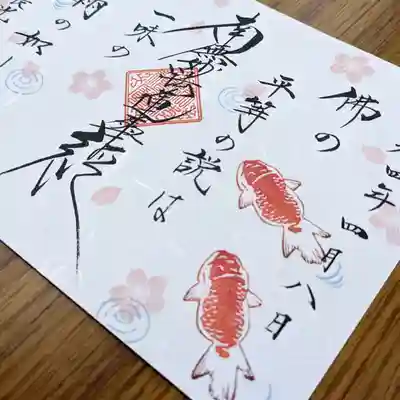 四年四月八日
佛の
平等の説は
南無妙法蓮華経
一味の
雨の如し